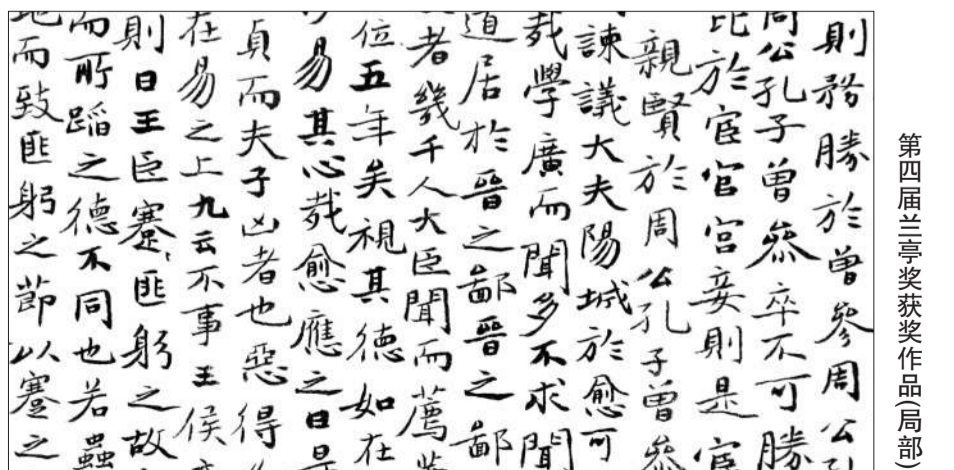 第四届兰亭奖获奖作品(局部)
則務勝於曾參周公孔
周公孔子曾參卒不可勝
比於宦官宮妾則是宦
親賢於周公孔子曾參
諫議大夫陽城於愈可
哉學廣而聞多不求聞
道居於晉之鄙晉之鄙
者幾千人大臣聞而薦
位五年矣視其德如在
易其心哉愈應之曰是
貞而夫子凶者也惡得
在易之上九云不事王侯
則曰王臣蹇、匪躬之故
而所蹈之德不同也若蠱
地而致匪躬之節以蹇之